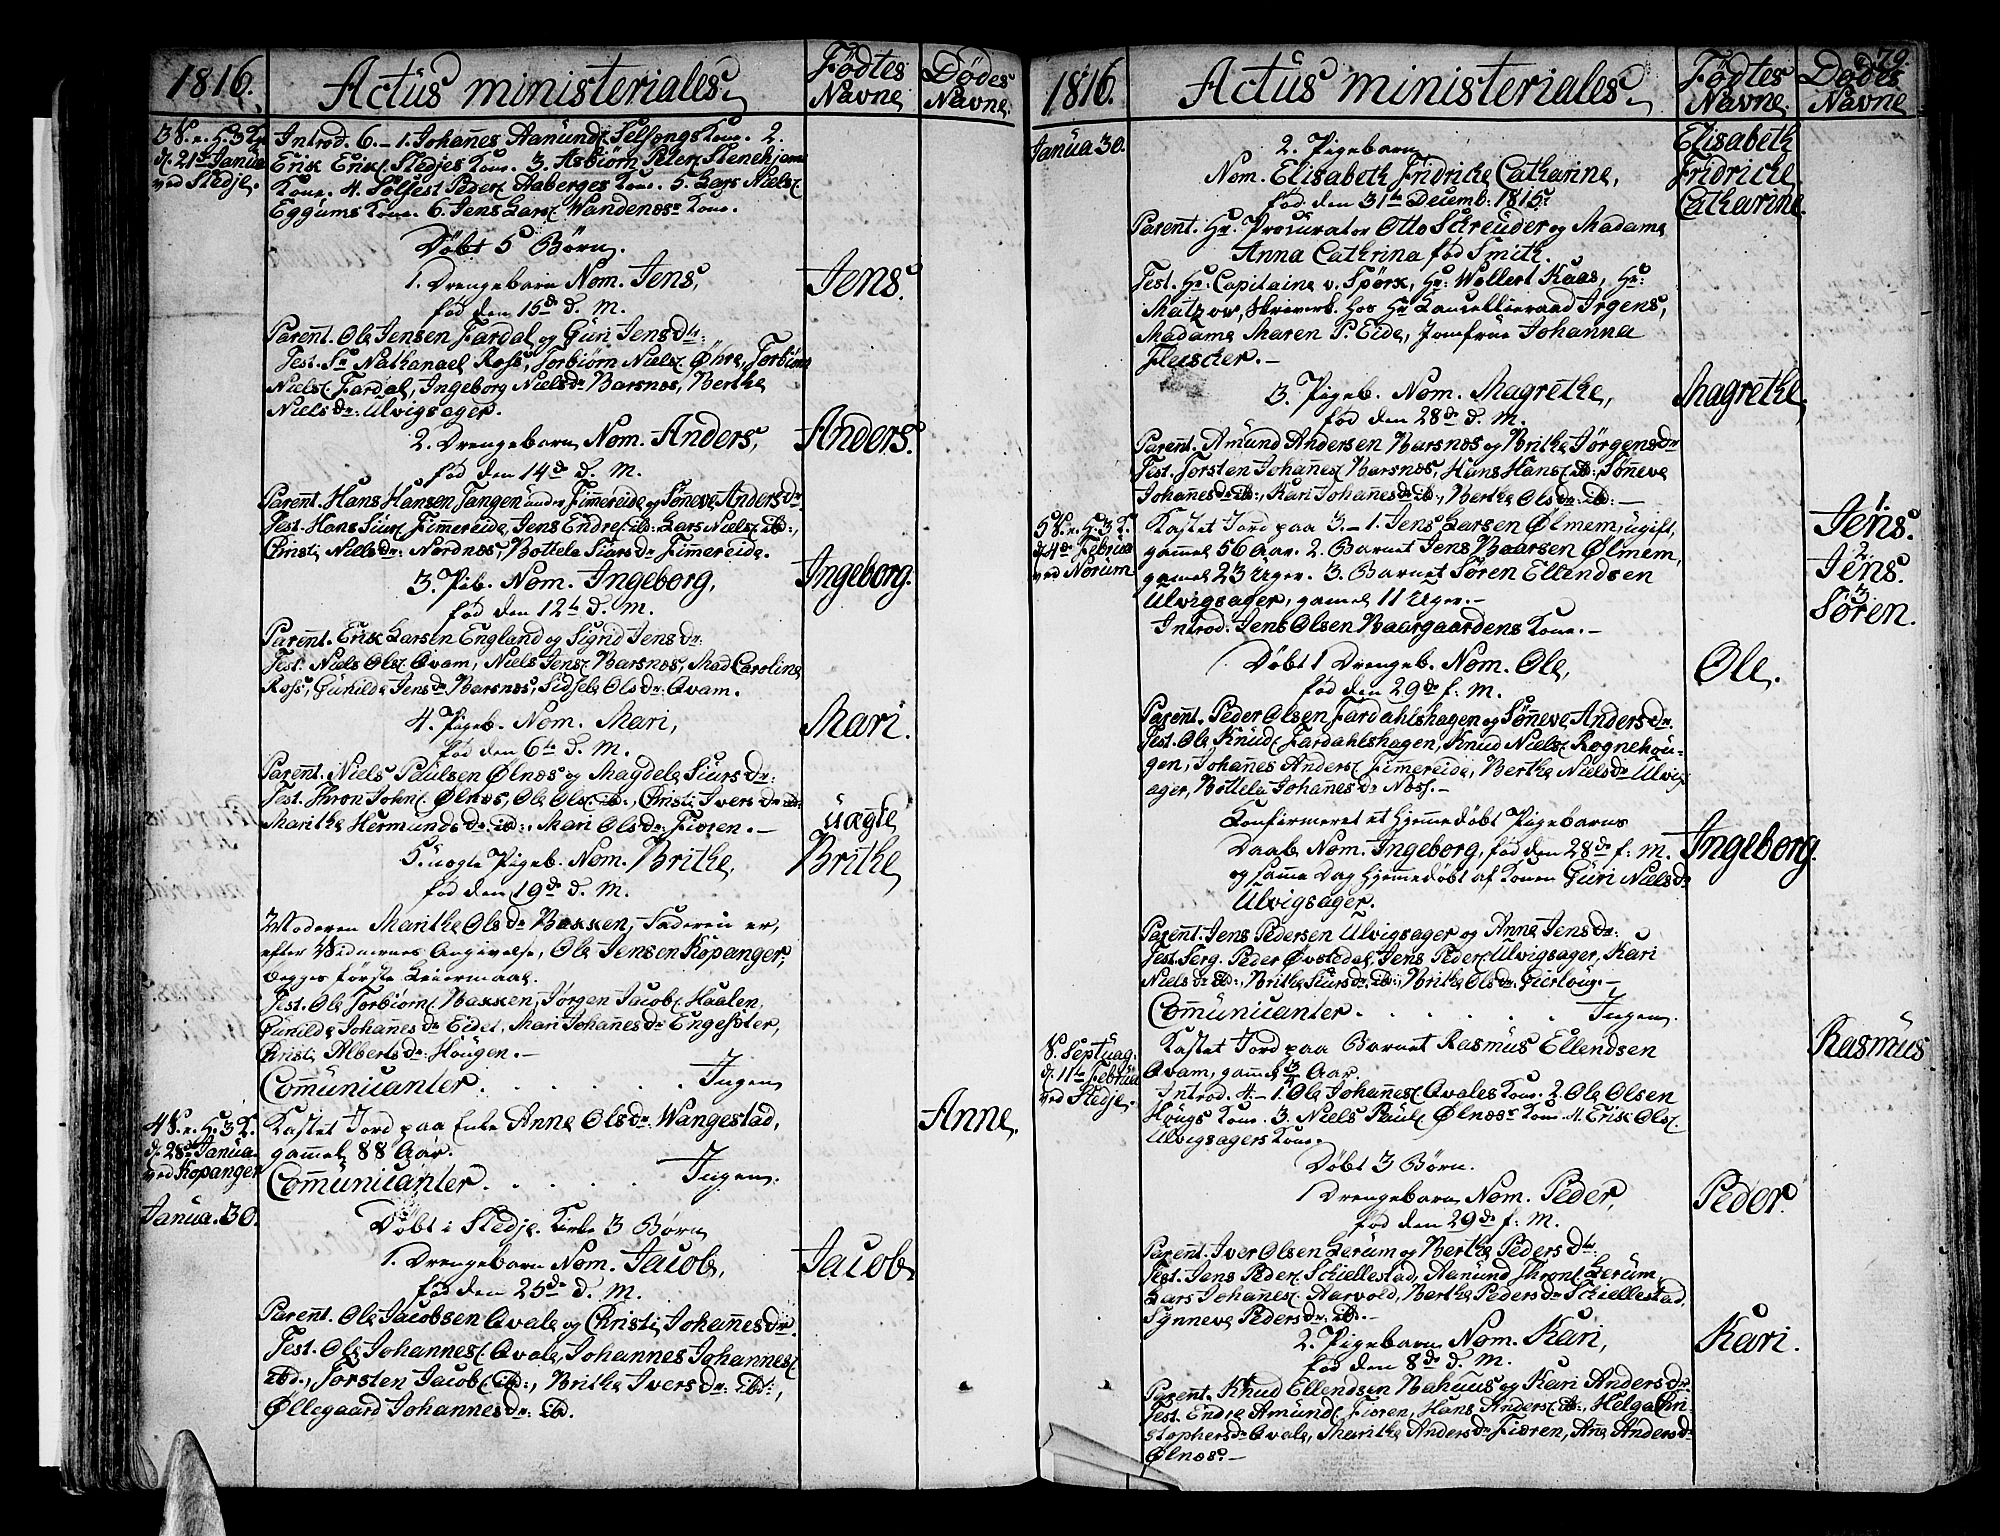 1816.
Actus ministeriales.
Fødtes Navne
Dødes Navne.
3 S. e. H. 3 K.
d. 21de Janua
ved Stedje.
Introd. 6. - 1. Johañes Aamunds. Selsengs Kone. 2.
Erik Eriks. Stedjes Kone. 3. Asbiørn Peters. Stenehjems
Kone. 4. Sølfest Peders. Aaberges Kone. 5. Lars Niels.
Eggums Kone. 6. Jens Lars. Wandenæs Kone.
Døbt 5 Børn.
1. Drengebarn Nom. Jens,
Jens.
fød den 15de d. M.
Parent. Ole Jensen Fardal og Guri Jensdtr
Test. Sr Nathanael Ross, Torbiørn Niels. Øhre, Torbiørn
Niels. Fardal, Ingeborg Nielsdr Barsnes, Berthe
Nielsdr: Ulvigsager.
2. Drengebarn Nom. Anders,
Anders.
fød den 14de d. M.
Parent. Hans Hansen Tangen under Fimereide og Søneve Andersdr
Test. Hans Siurs. Fimereide, Jens Endres. ibd: Lars Niels. ibd:,
Christi Nielsdr: Nordnes, Bottela Siursdr Fimereide.
3. Pib. Nom. Ingeborg,
Ingeborg.
fød den 12te d. M.
Parent. Erik Larsen England og Sigrid Jensdr:
Test. Niels Ols. Qvam, Niels Jens. Barsnes, Mad Caroline
Ross, Gunilde Jensdr Barsnes, Sidsele Olsdr: Qvam.
4. Pigeb. Nom. Mari,
Mari.
fød den 6te d. M.
Parent. Niels Paulsen Ølnes og Magdele Siursdr:
Test. Thron Johñ. Ølnes, Ole Ols. ibd:, Christi Iversdr ibd:
Marithe Hermundsdr: ibd:, Mari Olsdr: Fioren. -
uægte
Brithe
5. uægte Pigeb. Nom. Brithe,
fød den 19de d. M.
Moderen Marithe Olsdr Bakken, Faderen er,
efter Vidnernes Angivelse, Ole Jensen Kopanger,
begges første Leiermaal.
Test. Ole Torbiørns. Bakken, Jørgen Jacobs. Haalen,
Gunilde Johañesdr Eidet, Mari Johañesdr Engesæter,
Christi Albertsdr: Haugen. -
Comũnicanter. . . . . . Ingen
4 S. e. H. 3 K.
d. 28de Janua.
ved Kopanger
Kastet Jord paa Enke Anne Olsdr: Wangestad,
gamel 88 Aar.
Anne.
Comũnicanter. . . . . Ingen.
Janua. 30.
Døbt i Stedje Kirke 3 Børn
1. Drengebarn Nom. Jacob,
Jacob
fød den 25de d. M.
Parent. Ole Jacobsen Qvale og Christi Johannesdr.
Test. Ole Johannes. Qvale, Johannes Johannes.
ibd., Torsten Jacobs. ibd:, Brithe Iversdr: ibd:,
Øllegaard Johannesdr: ibd.
79.
1816.
Actus ministeriales.
Fødtes Navne.
Dødes Navne
Janua 30.
2. Pigebarn
Nom. Elisabeth Fridriche Catharine,
Elisabeth
Fridriche
Catharine.
fød den 31te Decemb: 1815.
Parent. Hr. Procurator Otto Schreuder og Madame
Anna Cathrina fød Smith.
Test. Hr: Capitaine v. Spörk, Hr: Wollert Kaas, Hr:
Matzow, Skriverk. hos Hr Cancellieraad Irgens,
Madame Maren P. Eide, Jomfrue Johanna
Fleischer. -
3. Pigeb. Nom. Magrethe,
Magrethe,
fød den 28de d. M.
Parent. Amund Andersen Barsnes og Brithe Jørgensdr
Test. Torsten Johanes. Barsnes, Hans Hans. ibd: Søñeve
Johanesdr ibd:, Kari Johañesdr ibd:, Berthe Olsdr: ibd: -
5 S. e. H. 3 K.
d. 4de Februa
ved Norum
Kastet Jord paa 3. - 1. Jens Larsen Ølmem, ugift,
gammel 56 Aar. 2. Barnet Jens Baarsen Ølmem,
gamel 23 Uger. 3. Barnet Søren Ellendsen
Ulvigsager, gamel 11 Uger. -
1. Jens.
2. Jens.
3. Søren.
Introd. Jens Olsen Baargaardens Kone. -
Døbt 1 Drengeb. Nom. Ole,
Ole.
fød den 29de f. M.
Parent. Peder Olsen Fardahlshagen og Søñeve Andersdr
Test. Ole Knuds. Fardahlshagen, Knud Niels. Rognehou-
gen, Johañes Anders. Fimereide, Berthe Nielsdr Ulvigs
ager, Bottela Johañesdr Noss. -
Konfirmeret et Hjemmedøbt Pigebarns
Daab Nom. Ingeborg, fød den 28de f: M.
Ingeborg.
og samme Dag Hjemmedøbt af Konen Guri Nielsdr
Ulvigsager.
Parent. Jens Pedersen Ulvigsager og Anne Jensdr:
Test. Serg. Peder Øvstedal, Jens Peders. Ulvigsager, Kari
Nielsdr ibd:, Brithe Siursdr. ibd:, Brithe Olsdr: Gierløug. -
Comũnicanter. . . . . . Ingen.
S. Septuag.
d. 11te Februa
ved Stedje.
Kastet Jord paa Barnet Rasmus Ellendsen
Qvam, gammel 3/4 Aar.
Rasmus
Introd. 4. - 1. Ole Johañes. Qvales Kone. 2. Ole Olsen
Hougs Kone. 3. Niels Pauls. Ølnæs Kone. 4. Erik Ols.
Ulvigsagers Kone.
Døbt 3 Børn.
1 Drengebarn Nom. Peder,
Peder.
fød den 29de f. M.
Parent. Iver Olsen Lerum og Berthe Pedersdtr
Test. Jens Peders. Schiellestad, Aamund Throns. Lerum,
Lars Johañes. Aarvold, Berthe Pedersdr Schiellestad,
Synneve Pedersdr: ibd.
2. Pigebarn Nom. Kari,
Kari.
fød den 8de d. M.
Parent. Knud Ellendsen Bahuus og Kari Andersdr
Test. Endre Amunds. Fioren, Hans Anders. ibd:, Helga Chri-
stophersdr Qvale, Marithe Andersdr Fioren, Ane Andersdr
Ølnæs. -